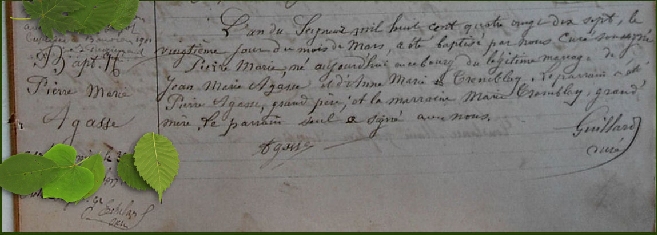 Bapt. H
Pierre Marie
Agasse
L'an du Seigneur mil huit cent quatre vingt dix sept, le
vingtième jour du mois de Mars, a été baptisé par nous Curé soussigné
Pierre Marie, né aujourd'hui au bourg du légitime mariage de
Jean Marie Agasse et d'Anne Marie Trembley. Le parrain a été
Pierre Agasse, grand père, et la marraine Marie Trembley, grand
mère. Le parrain seul a signé avec nous.
Agasse
Guillard
curé